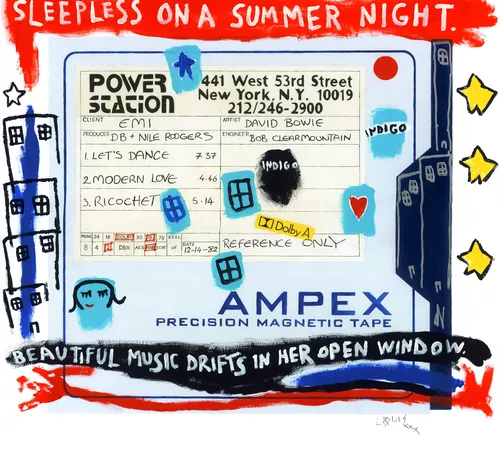 SLEEPLESS ON A SUMMER NIGHT.
POWER STATION
441 West 53rd Street
New York, N.Y. 10019
212/246-2900
CLIENT EMI
ARTIST DAVID BOWIE
PRODUCER DB + NILE RODGERS
ENGINEER BOB CLEARMOUNTAIN
1. LET'S DANCE 7 37
2. MODERN LOVE 4.46
3. RICOCHET 5.14
INDIGO
INDIGO
Dolby A
MONO 24 16
8 4 DBX
DATE 12-14-82
REFERENCE ONLY
AMPEX
PRECISION MAGNETIC TAPE
BEAUTIFUL MUSIC DRIFTS IN HER OPEN WINDOW.